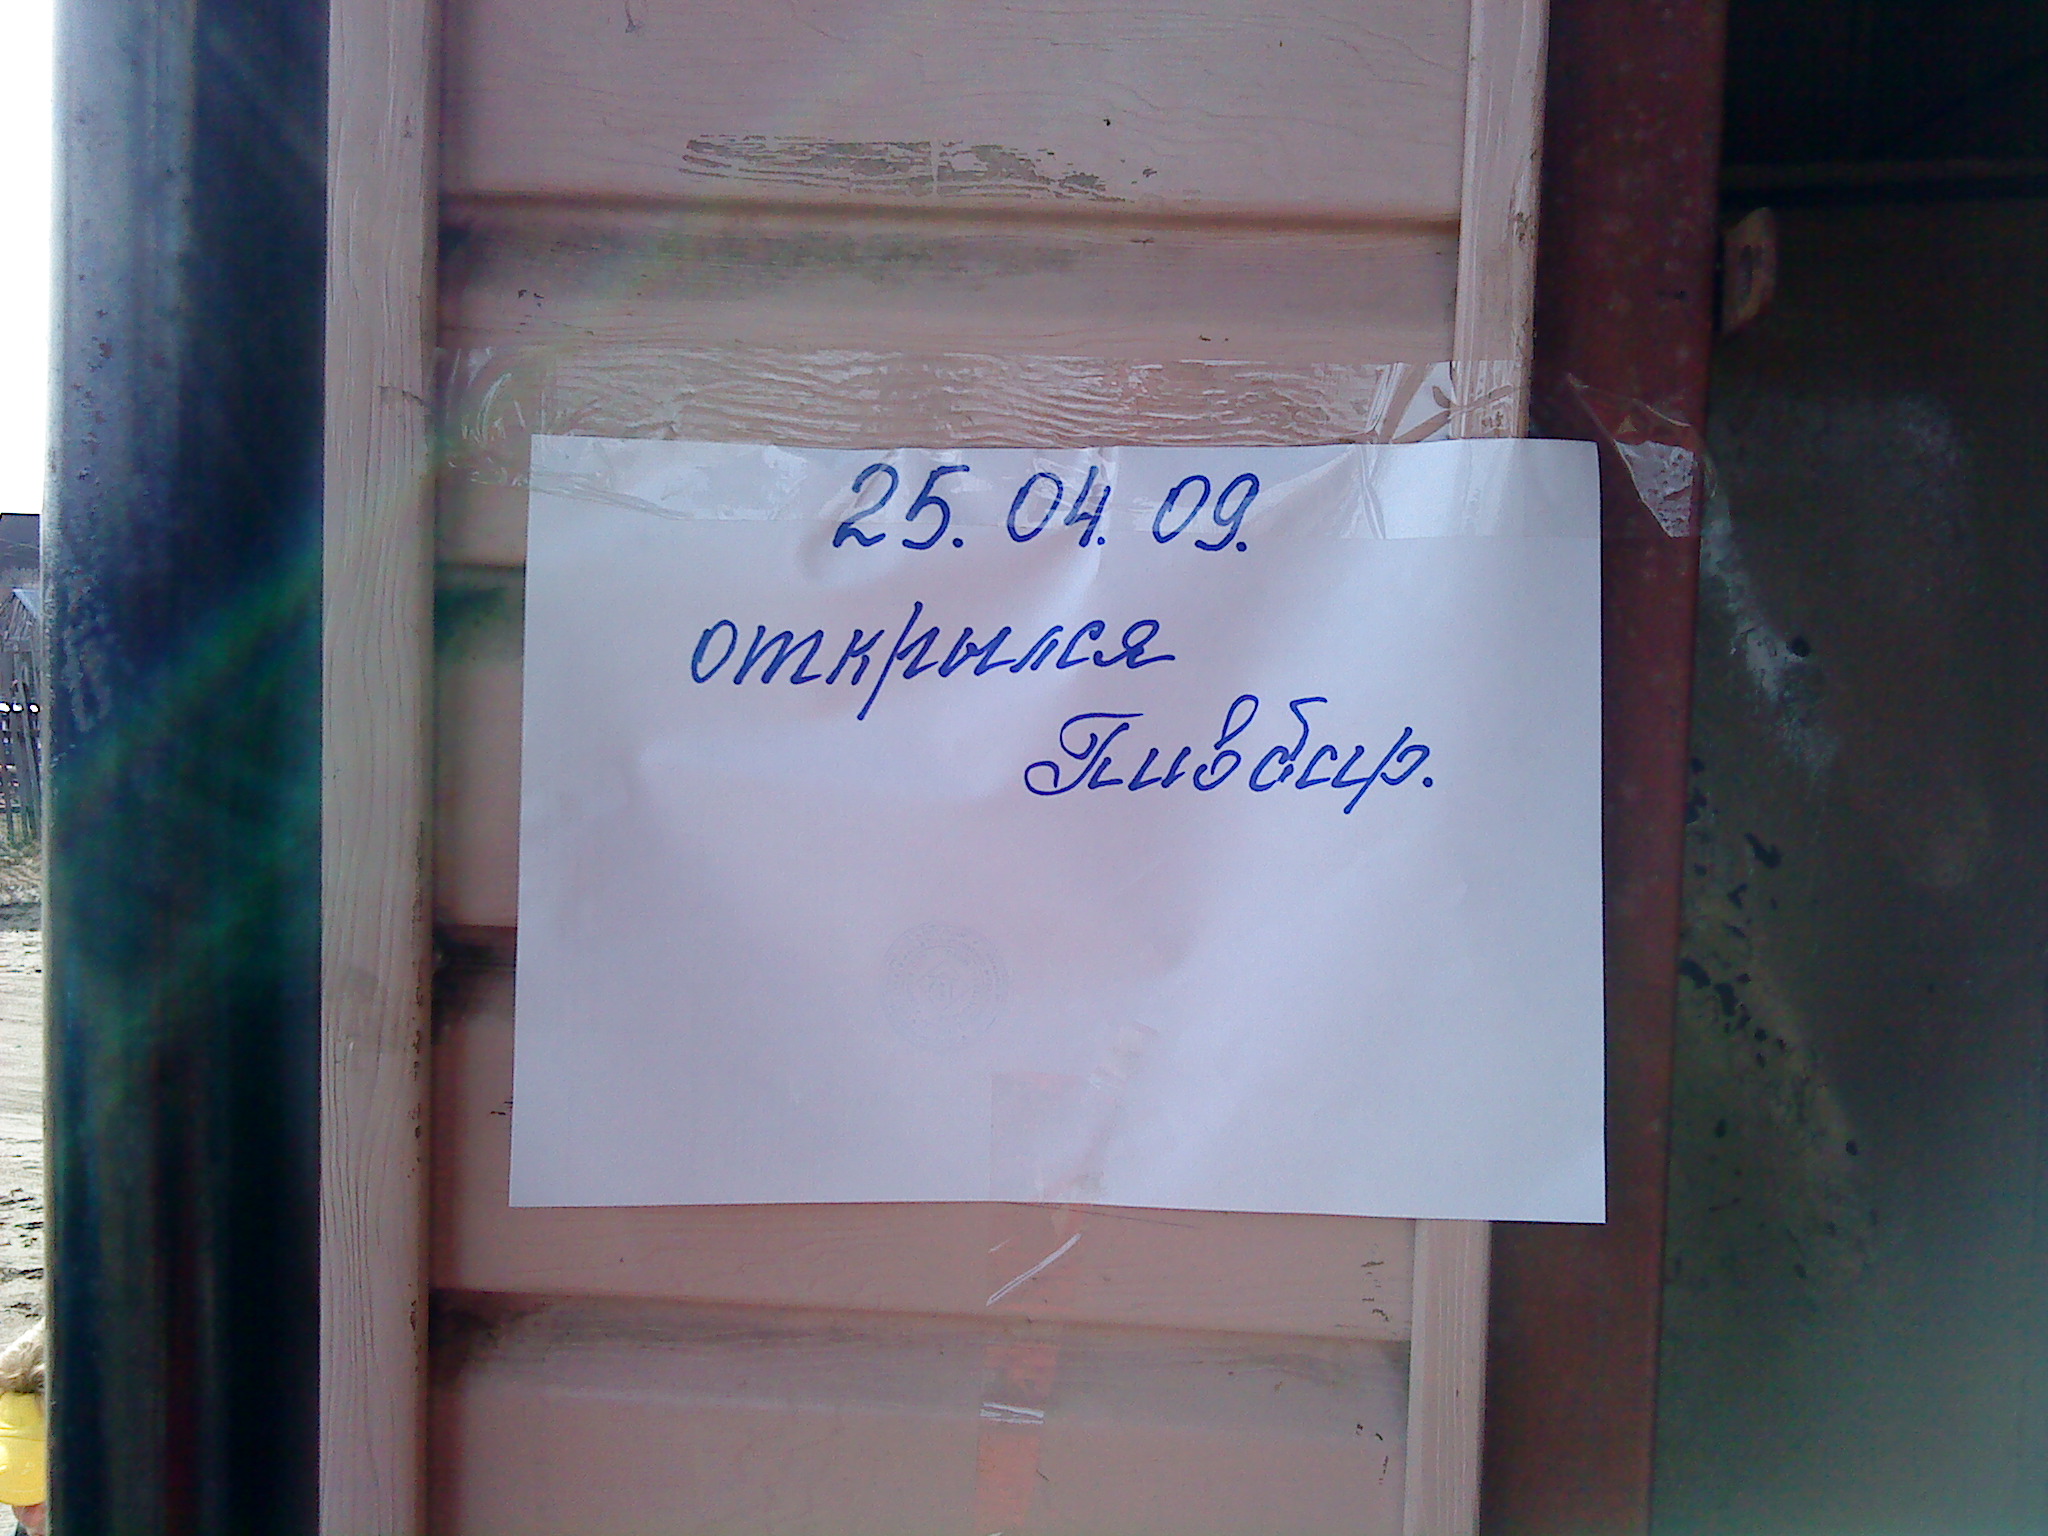 25. 04. 09.
открылся
Пивбар.